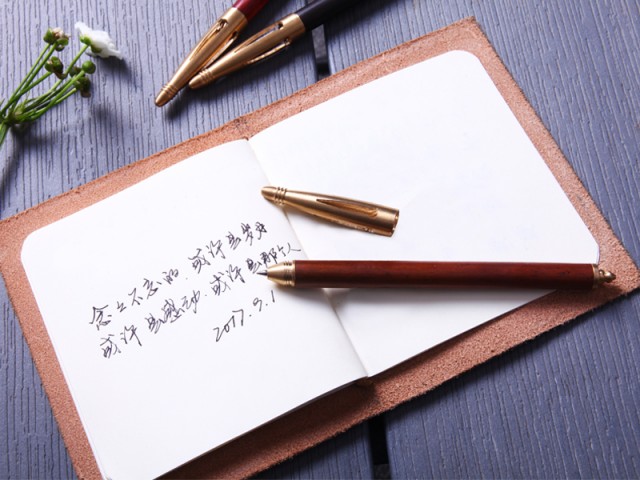 念念不忘的,或许是岁月
或许是感动,或许是那个人
2017.9.1